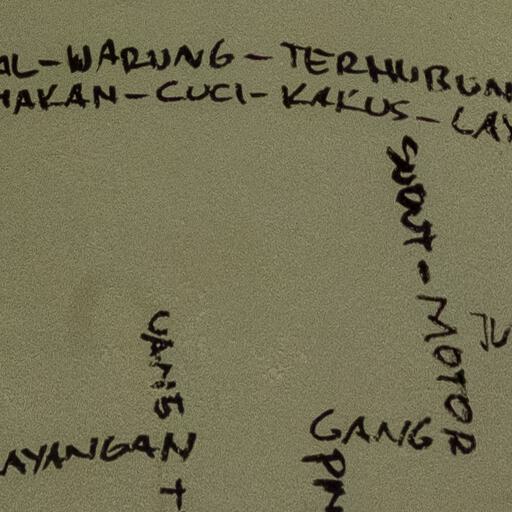 AL-WARUNG-TERHUBUN
MAKAN-CUCI-KAKUS-LAY
SUDUT-MOTOR
GANG
AYANGAN